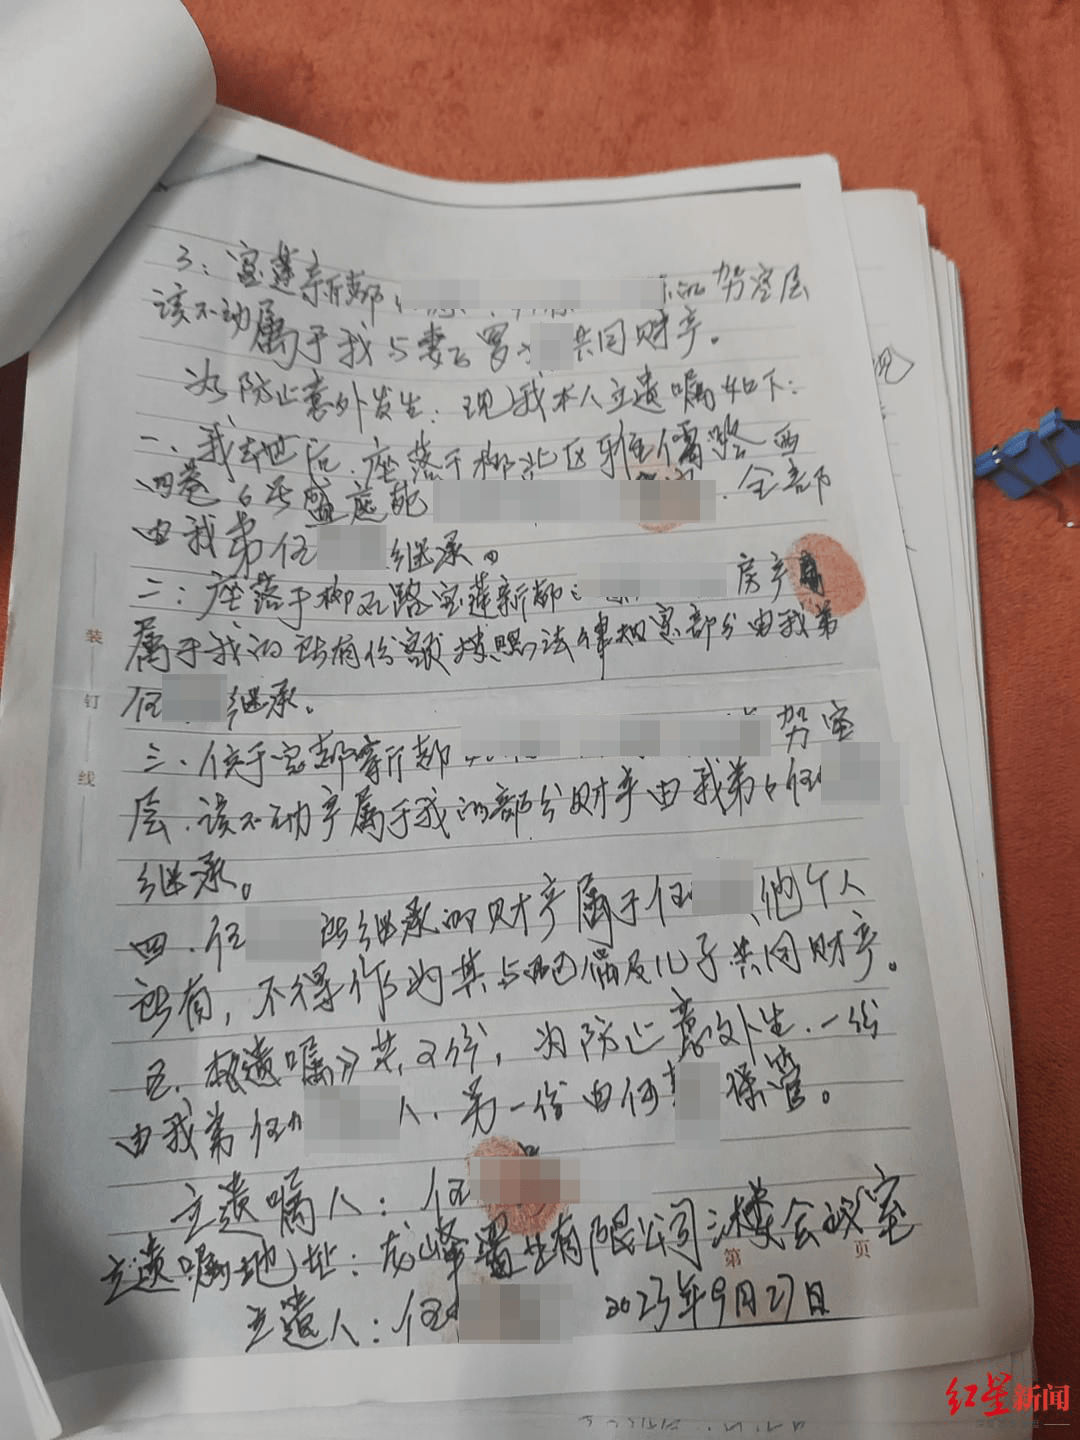 3：宝莲新都 驾空层
该不动属于我与妻子罗 共同财产。
为防止意外发生．现我本人立遗嘱如下：
一、我去世后．座落于柳北区雅儒路西
四巷6号盛庭苑 ．全部
由我弟伍 继承。
二：座落于柳石路宝莲新都 房产
属于我的所有份额按照法律规定部分由我弟
伍 继承。
三、位于宝都新都 驾空
层．该不动产属于我的部分财产由我弟 伍
继承。
四．伍 所继承的财产属于伍 他个人
所有，不得作为其与配偶及儿子共同财产。
五．本遗嘱 共 份，为防止意外生．一份
由我弟伍 人．另一份由何 保管。
立遗嘱人：伍
立遗嘱地址： 有限公司三楼会议室
立遗人：伍 2023年9月27日
装
钉
线
第 页
红星新闻